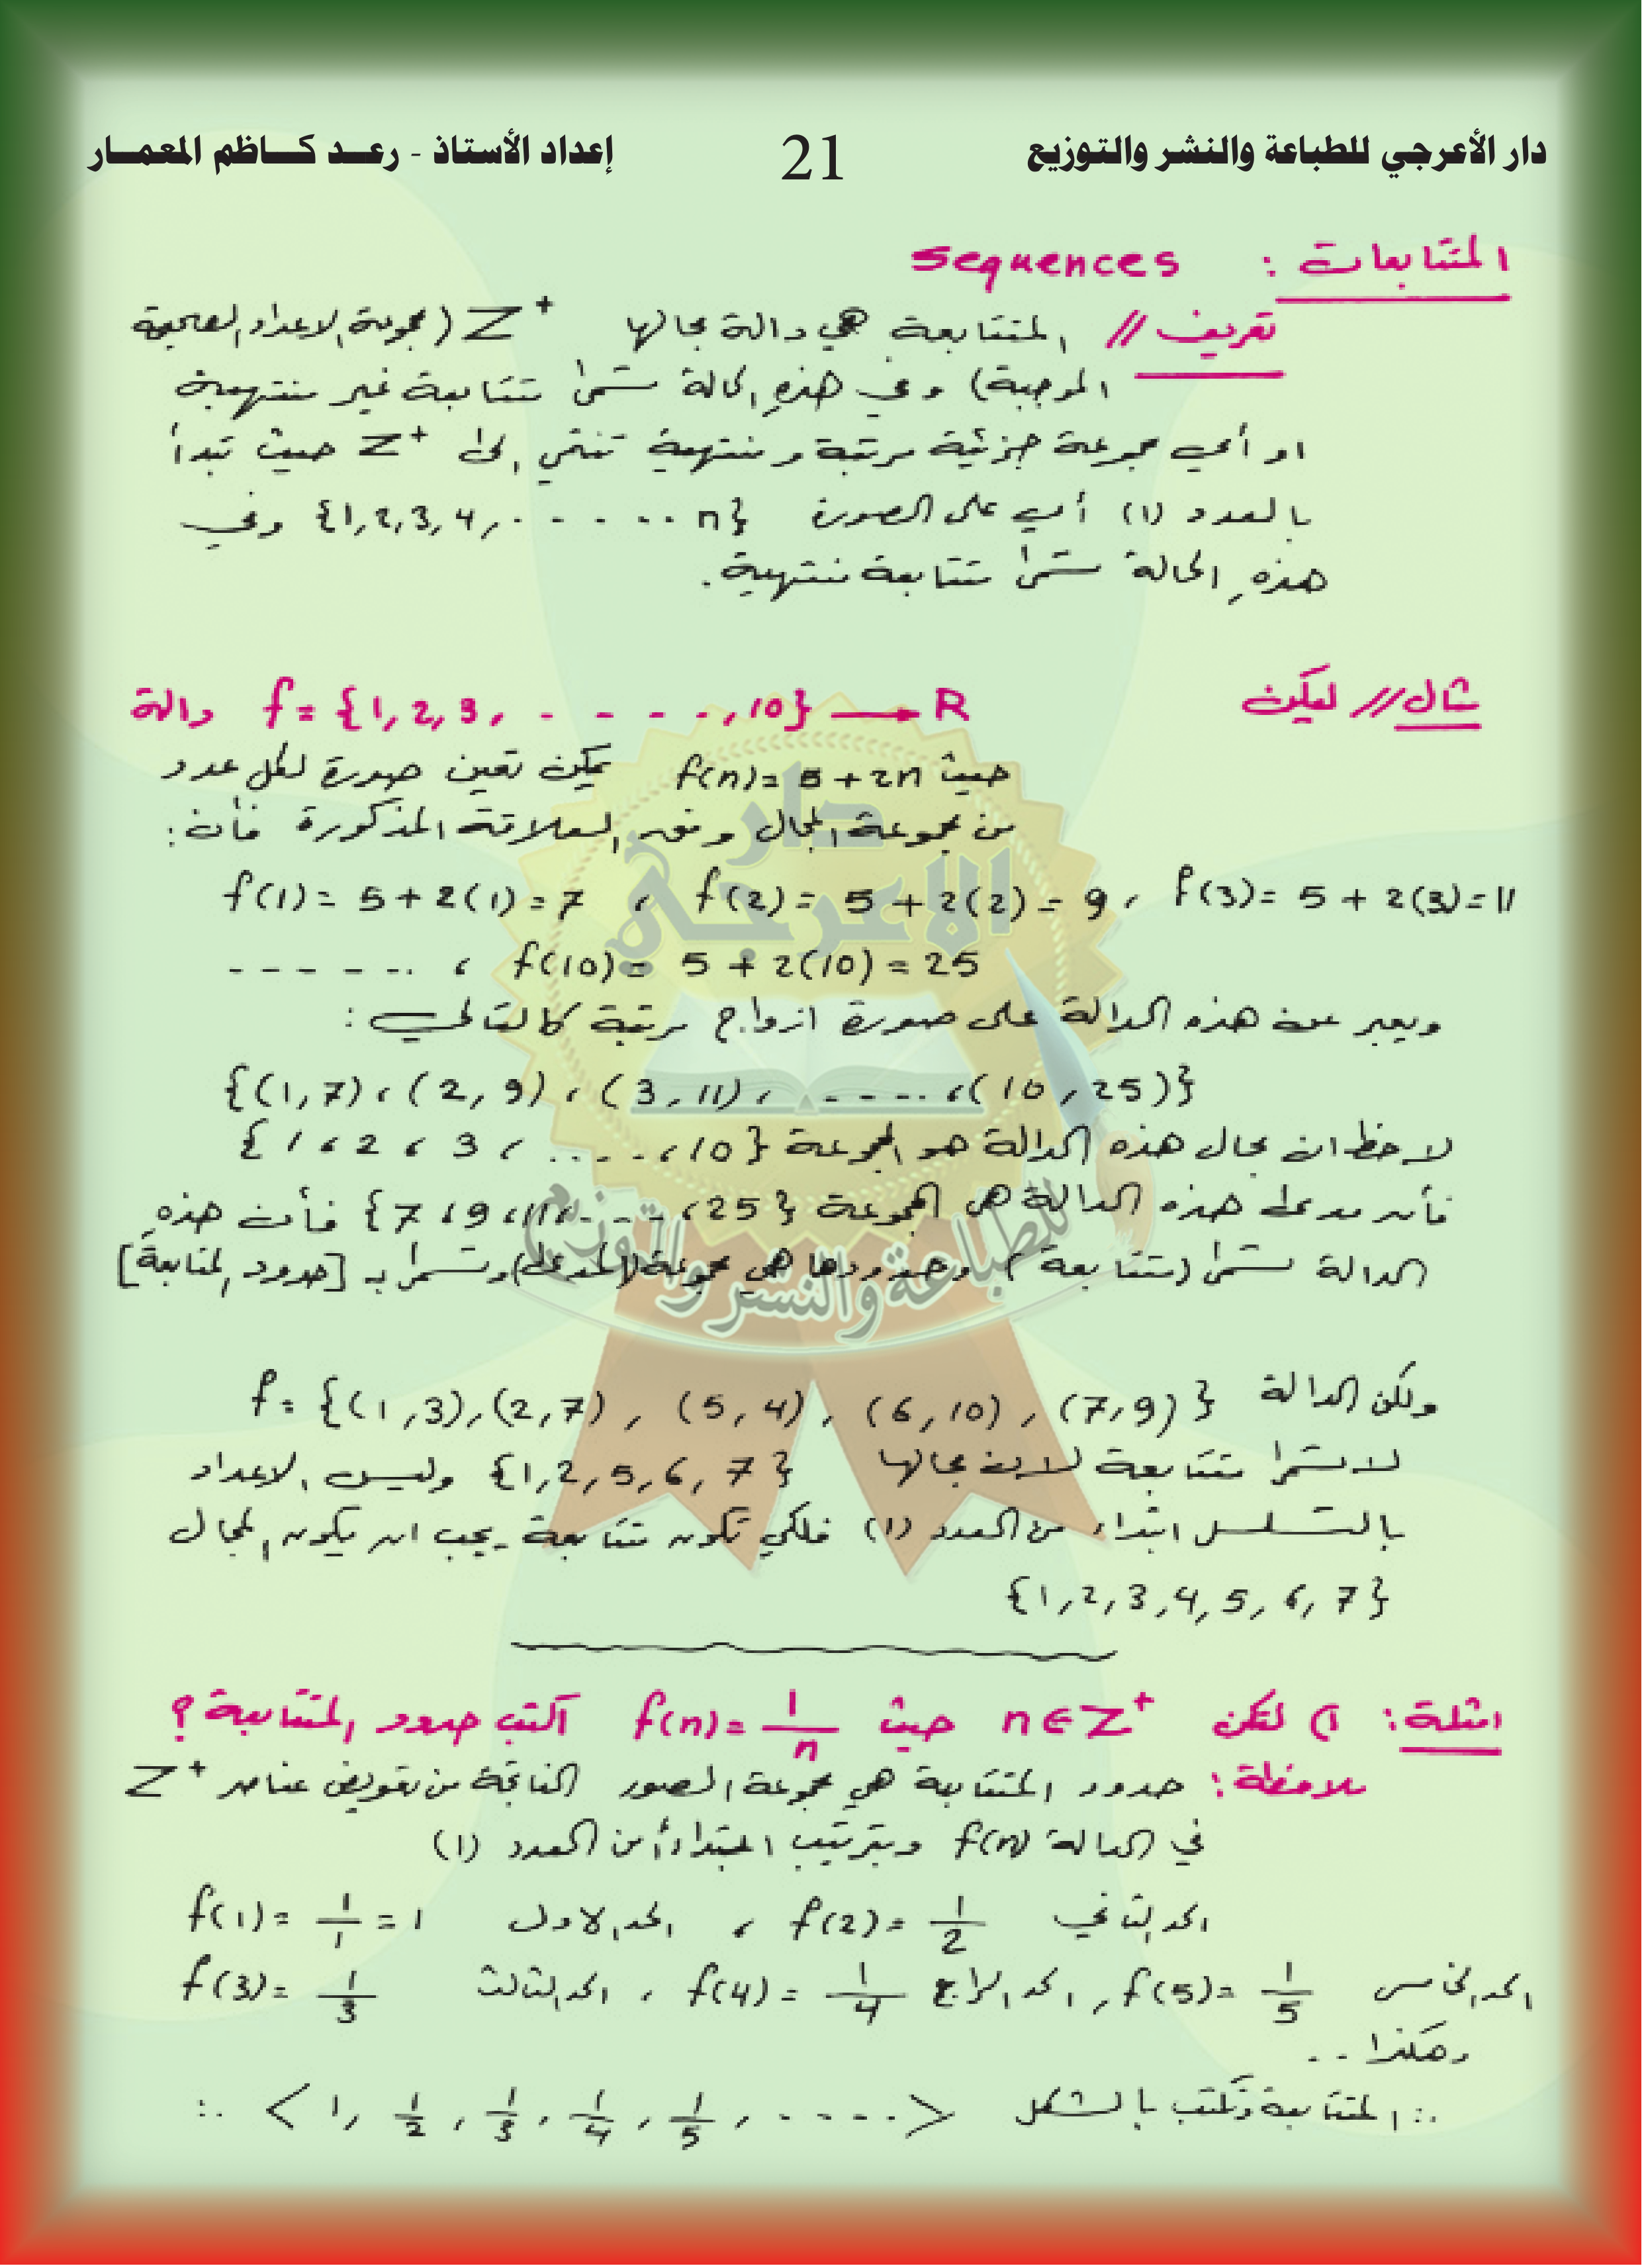 دار الأعرجي للطباعة والنشر والتوزيع 21 إعداد الأستاذ - رعـد كـاظم المعمـار
المتتابعات : sequences
تعريف // المتتابعة هي دالة مجالها Z⁺ (مجموعة الاعداد الصحيحة
الموجبة) وفي هذهِ الحالة تسمى متتابعة غير منتهية
او أي مجموعة جزئية مرتبة ومنتهية تنتمي إلى Z⁺ حيث تبدأ
بالعدد (1) أي على الصورة {1,2,3,4,.....n} وفي
هذهِ الحالة تسمى متتابعة منتهية.
مثال // ليكن f = {1,2,3,.....,10} → R دالة
حيث f(n) = 5 + 2n يمكن تعين صورة لكل عدد
من مجموعة المجال وفق العلاقة المذكورة فأن:
f(1) = 5 + 2(1) = 7 ، f(2) = 5 + 2(2) = 9 ، f(3) = 5 + 2(3) = 11
------ ، f(10) = 5 + 2(10) = 25
ويعبر عن هذه الدالة على صورة ازواج مرتبة كالتالي :
{(1,7) ، (2,9) ، (3,11) ، ..... ، (10,25)}
لاحظ ان مجال هذه الدالة هو المجموعة {1 ، 2 ، 3 ، ..... ، 10}
فأن مدى هذه الدالة هي المجموعة {7 ، 9 ، 11 ، ... ، 25} فأن هذهِ
الدالة تسمى (متتابعة) وحدودها هي مجموعة (المدى) وتسمى بـ [حدود المتتابعة]
ولكن الدالة f = {(1,3),(2,7),(5,4),(6,10),(7,9)}
لا تسمى متتابعة لان مجالها {1,2,5,6,7} وليس الاعداد
بالتسلسل ابتداء من العدد (1) فلكي تكون متتابعة يجب ان يكون المجال
{1,2,3,4,5,6,7}
امثلة : 1) لتكن n ∈ Z⁺ حيث f(n) = 1/n اكتب حدود المتتابعة ؟
ملاحظة : حدود المتتابعة هي مجموعة الصور الناتجة من تعويض عناصر Z⁺
في الدالة f(n) وبترتيب ابتداءأ من العدد (1)
f(1) = 1/1 = 1 الحد الاول ، f(2) = 1/2 الحد الثاني
f(3) = 1/3 الحد الثالث ، f(4) = 1/4 الحد الرابع , f(5) = 1/5 الحد الخامس
وهكذا ..
∴ المتتابعة تكتب بالشكل < 1, 1/2, 1/3, 1/4, 1/5, ..... > ∴
دار
الاعرجي
للطباعة والنشر والتوزيع